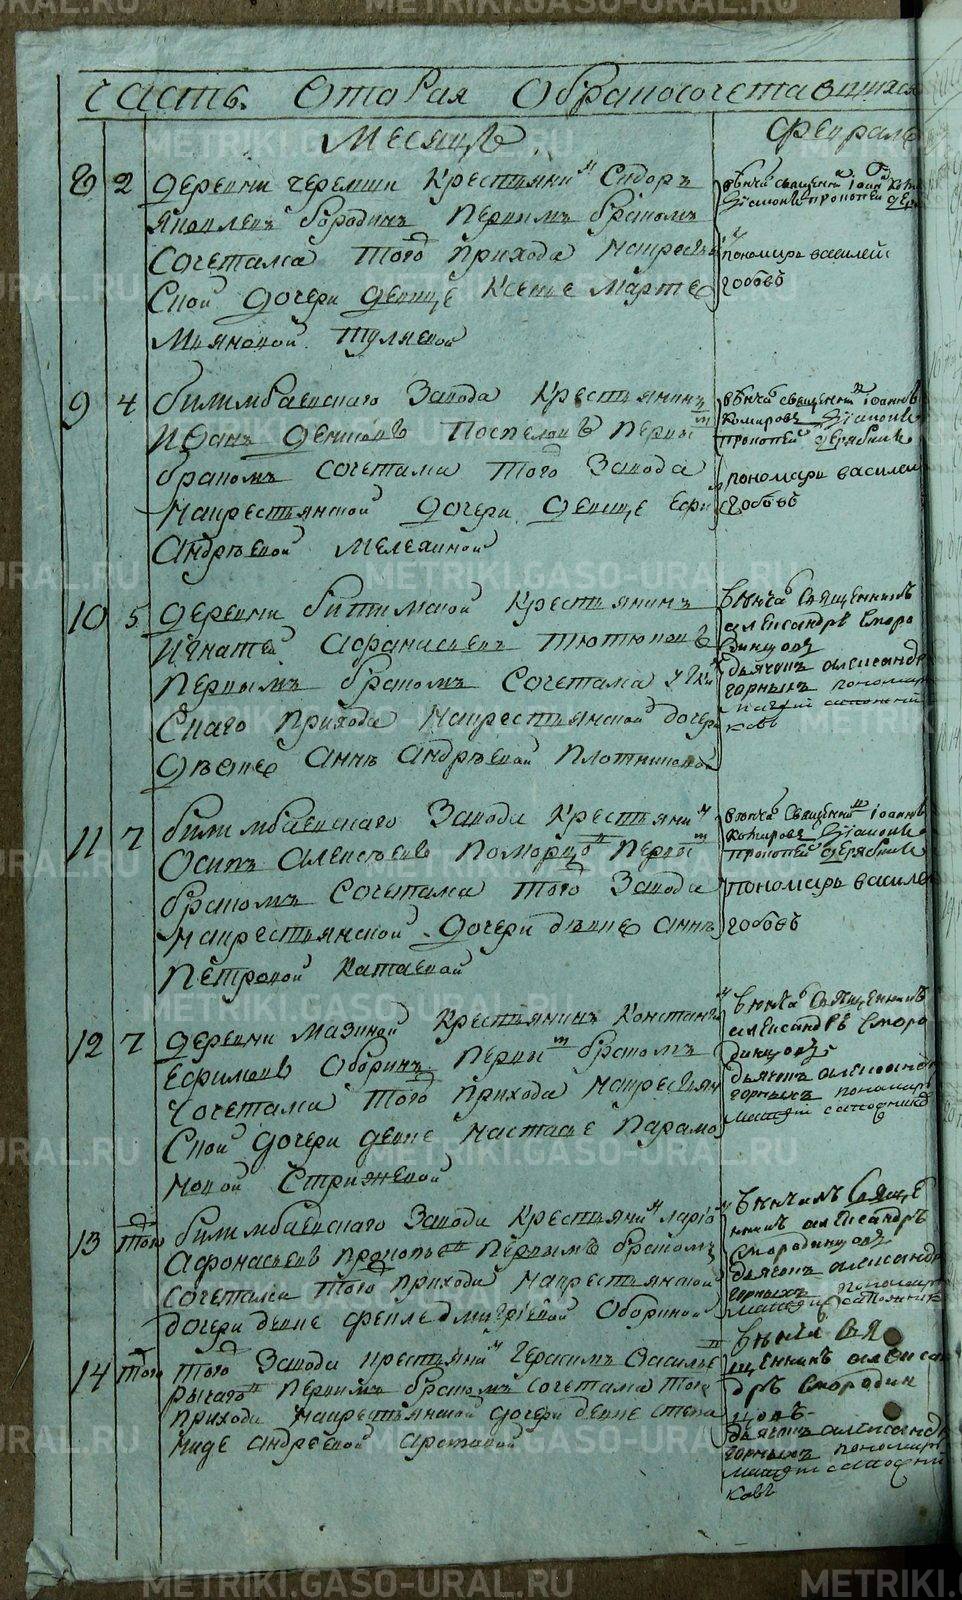 часть вторая обраносочетавшихся
месяцъ февраль
8 2 деревни черемши крестьянинъ Сидоръ
яковлевъ бородинъ первымъ бракомъ
сочетался того прихода накрестьян
ской дочери девице ксенье марте
мияновой туляевой
венча священни иоан
дияконъ прокопей
пономарь василей
гобовъ
9 4 билимбаевскаго завода крестьянинъ
иванъ денисовъ поспеловъ первы
бракомъ сочетался того завода
накрестьянской дочери девице
андреевой мелехиной
венча священни иоаннъ
комировъ дияконъ
прокопей дерябинъ
пономарь василей
гобовъ
10 5 деревни битимской крестьянинъ
игнатей афанасьевъ тютюковъ
первымъ бракомъ сочетался утки
скаго прихода накрестьянской дочери
девице анне андреевой плотниковой
венча священникъ
александръ сморо
динцовъ
дьячокъ александръ
горныхъ пономарь
сапожни
ковъ
11 7 билимбаевскаго завода крестьяни
осипъ алексеевъ поморцовъ первы
бракомъ сочетался того завода
накрестьянской дочери девице анне
петровой катаевой
венча священни иоаннъ
комировъ дияконъ
прокопей дерябинъ
пономарь василей
гобовъ
12 7 деревни мазиной крестьянинъ констан
ефимовъ оборинъ первы бракомъ
сочетался того прихода накрестьян
ской дочери девице настасье парамо
новой стрижевой
венча священникъ
александръ сморо
динцовъ
дьячокъ александръ
горныхъ пономарь
сапожникъ
13 того билимбаевскаго завода крестьяни ларио
афонасьевъ прокопье первымъ бракомъ
сочетался того прихода накрестьянской
дочери девице фекле дмитриевой обориной
венчалъ свяще
никъ александръ
смородинцовъ
дьячокъ александръ
горныхъ пономарь
сапожникъ
14 того того завода крестьяни герасимъ василье
первымъ бракомъ сочетался того
прихода накрестьянской дочери девице степа
ниде андреевой
венча свя
щенникъ алекса
дръ смородин
цовъ
дьячокъ александръ
горныхъ пономарь
сапожни
ковъ
METRIKI.GASO-URAL.RU